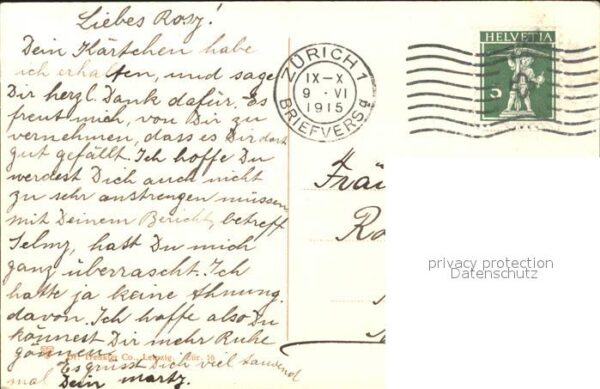 Liebes Rosy!
Dein Kärtchen habe
ich erhalten, und sage
Dir herzl. Dank dafür. Es
freut mich, von Dir zu
vernehmen, dass es Dir dort
gut gefällt. Ich hoffe Du
werdest Dich auch nicht
zu sehr anstrengen müssen
mit Deinem Bericht, betreff
Selmy, hast Du mich
ganz überrascht. Ich
hatte ja keine Ahnung
davon. Ich hoffe also Du
könnest Dir mehr Ruhe
gönnen.
Es grüsst Dich viel tausend
mal Dein
Dr. Trenkler Co., Leipzig. Zür. 16
ZÜRICH 1
IX–X
9 · VI
1915
BRIEFVERSg
HELVETIA
5
Fräu
Ro
privacy protection
Datenschutz